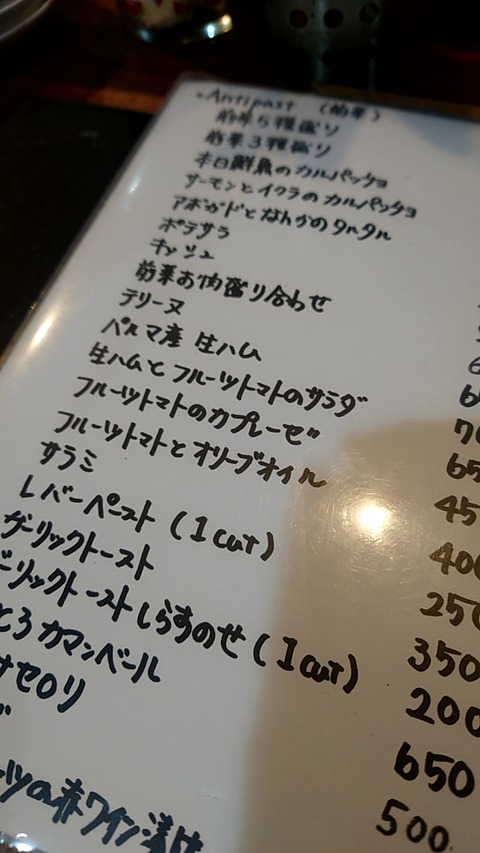 ・Antipast (前菜)
前菜5種盛り
前菜3種盛り
本日鮮魚のカルパッチョ
サーモンとイクラのカルパッチョ
アボガドとなんかのタルタル
ポテサラ
キッシュ
前菜お肉盛り合わせ
テリーヌ
パルマ産 生ハム
生ハムとフルーツトマトのサラダ
フルーツトマトのカプレーゼ
フルーツトマトとオリーブオイル
サラミ
レバーペースト (1cut)
ガーリックトースト
ガーリックトーストしらすのせ (1cut)
とろカマンベール
セロリ
の赤ワイン漬け
70
65
45
400
250
350
200
650
500